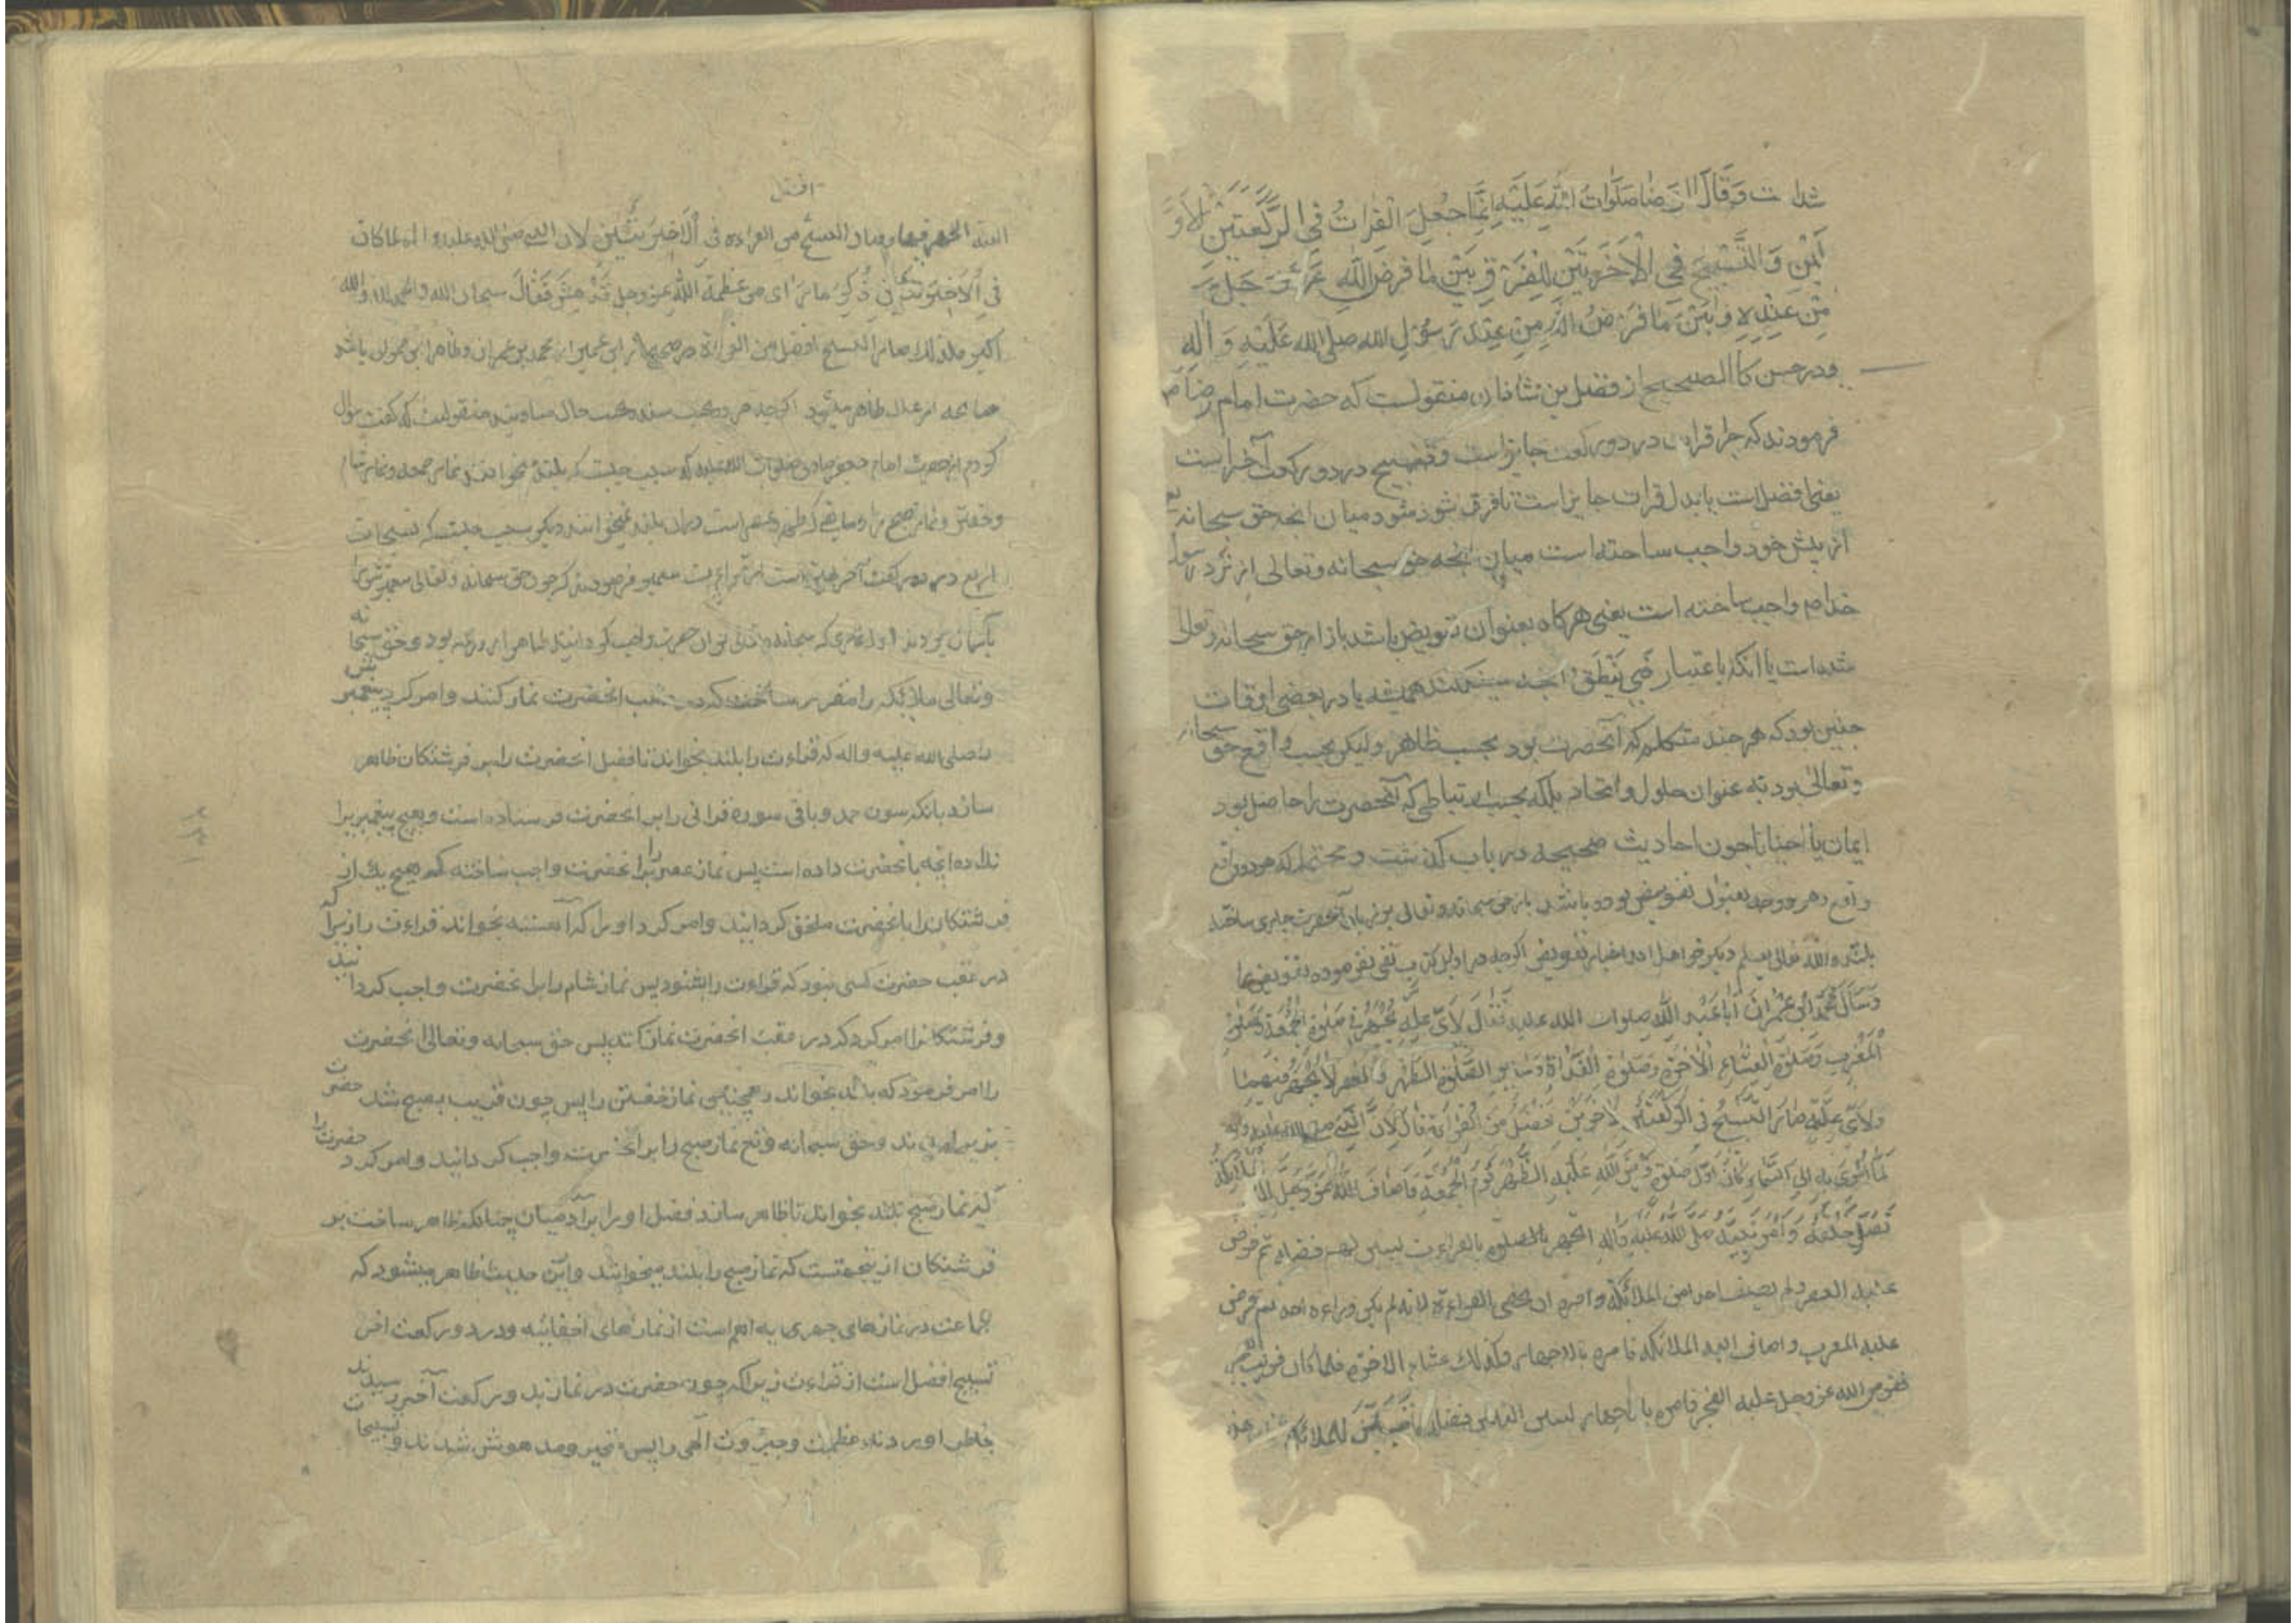 وَقَالَ الرِّضَا صَلَوَاتُ اللّٰهِ عَلَيْهِ اِنَّمَا جُعِلَ الْقِرَاتُ فِي الرَّكْعَتَيْنِ الْاَوَّ
لَيْنِ وَ التَّسْبِيْحَ فِي الْاَخِيرَتَيْنِ لِلْفَرْقِ بَيْنَ مَا فَرَضَ اللّٰهِ عَزَّ وَ جَلَّ
مِنْ عِنْدِهِ وَ بَيْنَ مَا فَرَضَ اللّٰهُ مِنْ عِنْدِ رَسُولِ الله صلى الله عَلَيْهِ وَ اٰلِهِ
ودر حسن كالصحيح از فضل بن شاذان منقولست كه حضرت امام رضا ص
فرمودند كه چرا قرات در دو ركعت جايز است و تسبيح در دو ركعت آخر است
يعنى افضل است يا بدل قرات جايز است تا فرق شود ميان انچه حق سبحانه
از پيش خود واجب ساخته است ميان انچه حق سبحانه و تعالى از نزد رسول
خدا ص واجب ساخته است يعنى هركاه بعنوان تفويض باشد باز امر حق سبحانه و تعالى
شده است يا انكه باعتبار فبي ينطق انچه ميكفت هميشه يا در بعضى اوقات
چنين بود كه هر چند متكلم كه آنحضرت بود بحسب ظاهر وليكن بحسب واقع حق سبحانه
و تعالى بود نه عنوان حلول و اتحاد بلكه بحسب ارتباطى كه آنحضرت را حاصل بود
احيانا چون احاديث صحيحه در باب كذشت و محتمل كه هر دو واقع
بعنوان تفويض بوده باشد باز حق سبحانه و تعالى بر زبان آنحضرت جارى ساخته
باشد و الله تعالى يعلم ديكر خواهد امد اخبار تفويض اكرچه در اوايل كتاب نفى نفرموده تفويض را
وَسَاَلَ مُحَمَّدُ بْنُ عِمْرَانَ اَبَا عَبْدِ اللّٰهِ صلوات الله عليه فَقَالَ لِاَيِّ عِلَّةٍ يُجْهَرُ فِي صَلٰوةِ الْجُمُعَةِ وَ صَلٰوةِ
الْمَغْرِبِ وَ صَلٰوةِ الْعِشَاءِ الْاٰخِرَةِ وَ صَلٰوةِ الْغَدَاةِ وَ سَايِرِ الصَّلٰوةِ الظُّهْرِ وَ الْعَصْرِ لَا يُجْهَرُ فِيْهِمَا
وَلِاَيِّ عِلَّةٍ صَارَ التَّسْبِيْحُ فِي الرَّكْعَتَيْنِ الْاَخِيرَتَيْنِ اَفْضَلَ مِنَ الْقِرَاءَةِ قَالَ لِاَنَّ النَّبِيَّ صلى الله عليه و اله
لَمَّا اُسْرِيَ بِهِ اِلَى السَّمَاءِ كَانَ اَوَّلُ صَلٰوةٍ فَرَضَ اللّٰهِ عَلَيْهِ الظُّهْرَ يَوْمَ الْجُمُعَةِ فَاَضَافَ اللّٰهُ عَزَّ وَجَلَّ اِلَيْهِ الْمَلٰائِكَةَ
تُصَلِّي خَلْفَهُ وَ اَمَرَ نَبِيَّهُ صَلَّى اللّٰهُ عَلَيْهِ وَ اٰلِهِ بالقراءت ليبين لهم فضله ثم فرض
عليه العصر و لم يضف احدا من الملائكة و امره ان يخفى القراءة لانه لم يكن وراءه احد ثم فرض
عليه المغرب و اضاف اليه الملائكة فامره بالاجهار و كذلك عشاء الاخرة فلما كان قرب الفجر
ففرض الله عز و جل عليه الفجر فامره بالاجهار ليبين للناس فضله كما بين للملائكة
افضل
العلة يجهر فيها و صار التسبيح من القراءة فى الْاَخِيرَتَيْنِ لان النبى صلى الله عليه و اله لما كان
فى الْاَخِيرَتَيْنِ ذَكَرَ ما راى من عظمة الله عز وجل فدهش فَقَالَ سبحان الله و الحمد لله و الله
اكبر فلذلك صار التسبيح افضل من القراءة در صحيح از ابن عمير از محمد بن عمران و ظاهرا ابن حمران باشد
چنانچه از علل ظاهر ميشود اكرچه هر دو بحسب سند و بحسب حال مساويند منقولست كه كفت سؤال
كردم از حضرت امام جعفر صادق صلوات الله عليه كه سبب چيست كه بلند ميخوانند در نماز جمعه و نماز شام
و خفتن و نماز صبح را و ما بقى كه ظهر و عصر است در ان بلند نميخوانند و ديكر سبب چيست كه تسبيحات
اربع در دو ركعت آخر بهتر است از قراءت حضرت فرمودند كه چون حق سبحانه و تعالى پيغمبرش را
باسمان بردند اول نمازى كه سبحانه و تعالى بر ان حضرت واجب كردانيد ظاهرا روز جمعه بود و حق سبحانه
و تعالى ملائكه را مقرر ساخت كه در عقب انحضرت نماز كنند و امر كرد پيغمبرش
را صلى الله عليه و اله كه قراءت را بلند بخواند تا فضل انحضرت را بر فرشتكان ظاهر
سازد بانكه سوره حمد و باقى سوره قرانى را بر انحضرت فرستاده است و بهيچ پيغمبرى را
نداده انچه بانحضرت داده است پس نماز عصر را بر انحضرت واجب ساخته كه هيچ يك از
فرشتكان را بانحضرت ملحق نكردانيد و امر كرد او را كه آهسته بخواند قراءت را زيرا كه
در عقب حضرت كسى نبود كه قراءت را بشنود پس نماز شام را بر انحضرت واجب كردانيد
و فرشتكان را امر كرد كه در عقب انحضرت نماز كنند پس حق سبحانه و تعالى انحضرت
را امر فرمود كه بلند بخواند و همچنين نماز خفتن را پس چون قريب بصبح شد حضرت
بزير امدند و حق سبحانه و تعالى نماز صبح را بر انحضرت واجب كردانيد و امر كرد حضرت را
كه نماز صبح بلند بخواند تا ظاهر سازد فضل او را بر آدميان چنانكه ظاهر ساخت بر
فرشتكان ازينجهتست كه نماز صبح را بلند ميخوانند و ازين حديث ظاهر ميشود كه
جماعت در نمازهاى جهريه اهم است از نمازهاى اخفائيه و در دو ركعت اخر
تسبيح افضل است از قراءت زيرا كه چون حضرت در نماز بدو ركعت آخر رسيدند
بخاطر اوردند عظمت و جبروت الهى را پس متحير و مدهوش شدند و تسبيحات